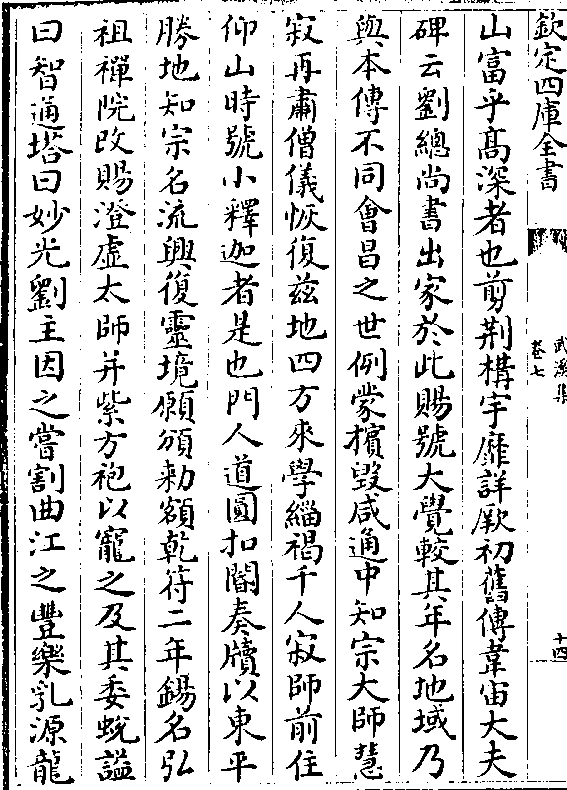 欽定四庫全書
武溪集
卷七
十四
山富乎高深者也剪荆構宇靡詳厥初舊傳韋宙大夫
碑云劉總尚書出家於此賜號大覺較其年名地域乃
與本傳不同會昌之世例蒙擯毁咸通中知宗大師慧
寂再肅僧儀恢復兹地四方來學緇褐千人寂師前住
仰山時號小釋迦者是也門人道圓扣閽奏牘以東平
勝地知宗名流興復靈境願頒勅額乾符二年錫名弘
祖禪院改賜澄虚太師并紫方袍以寵之及其委蛻謚
曰智通塔曰妙光劉主因之嘗割曲江之豐樂乳源龍